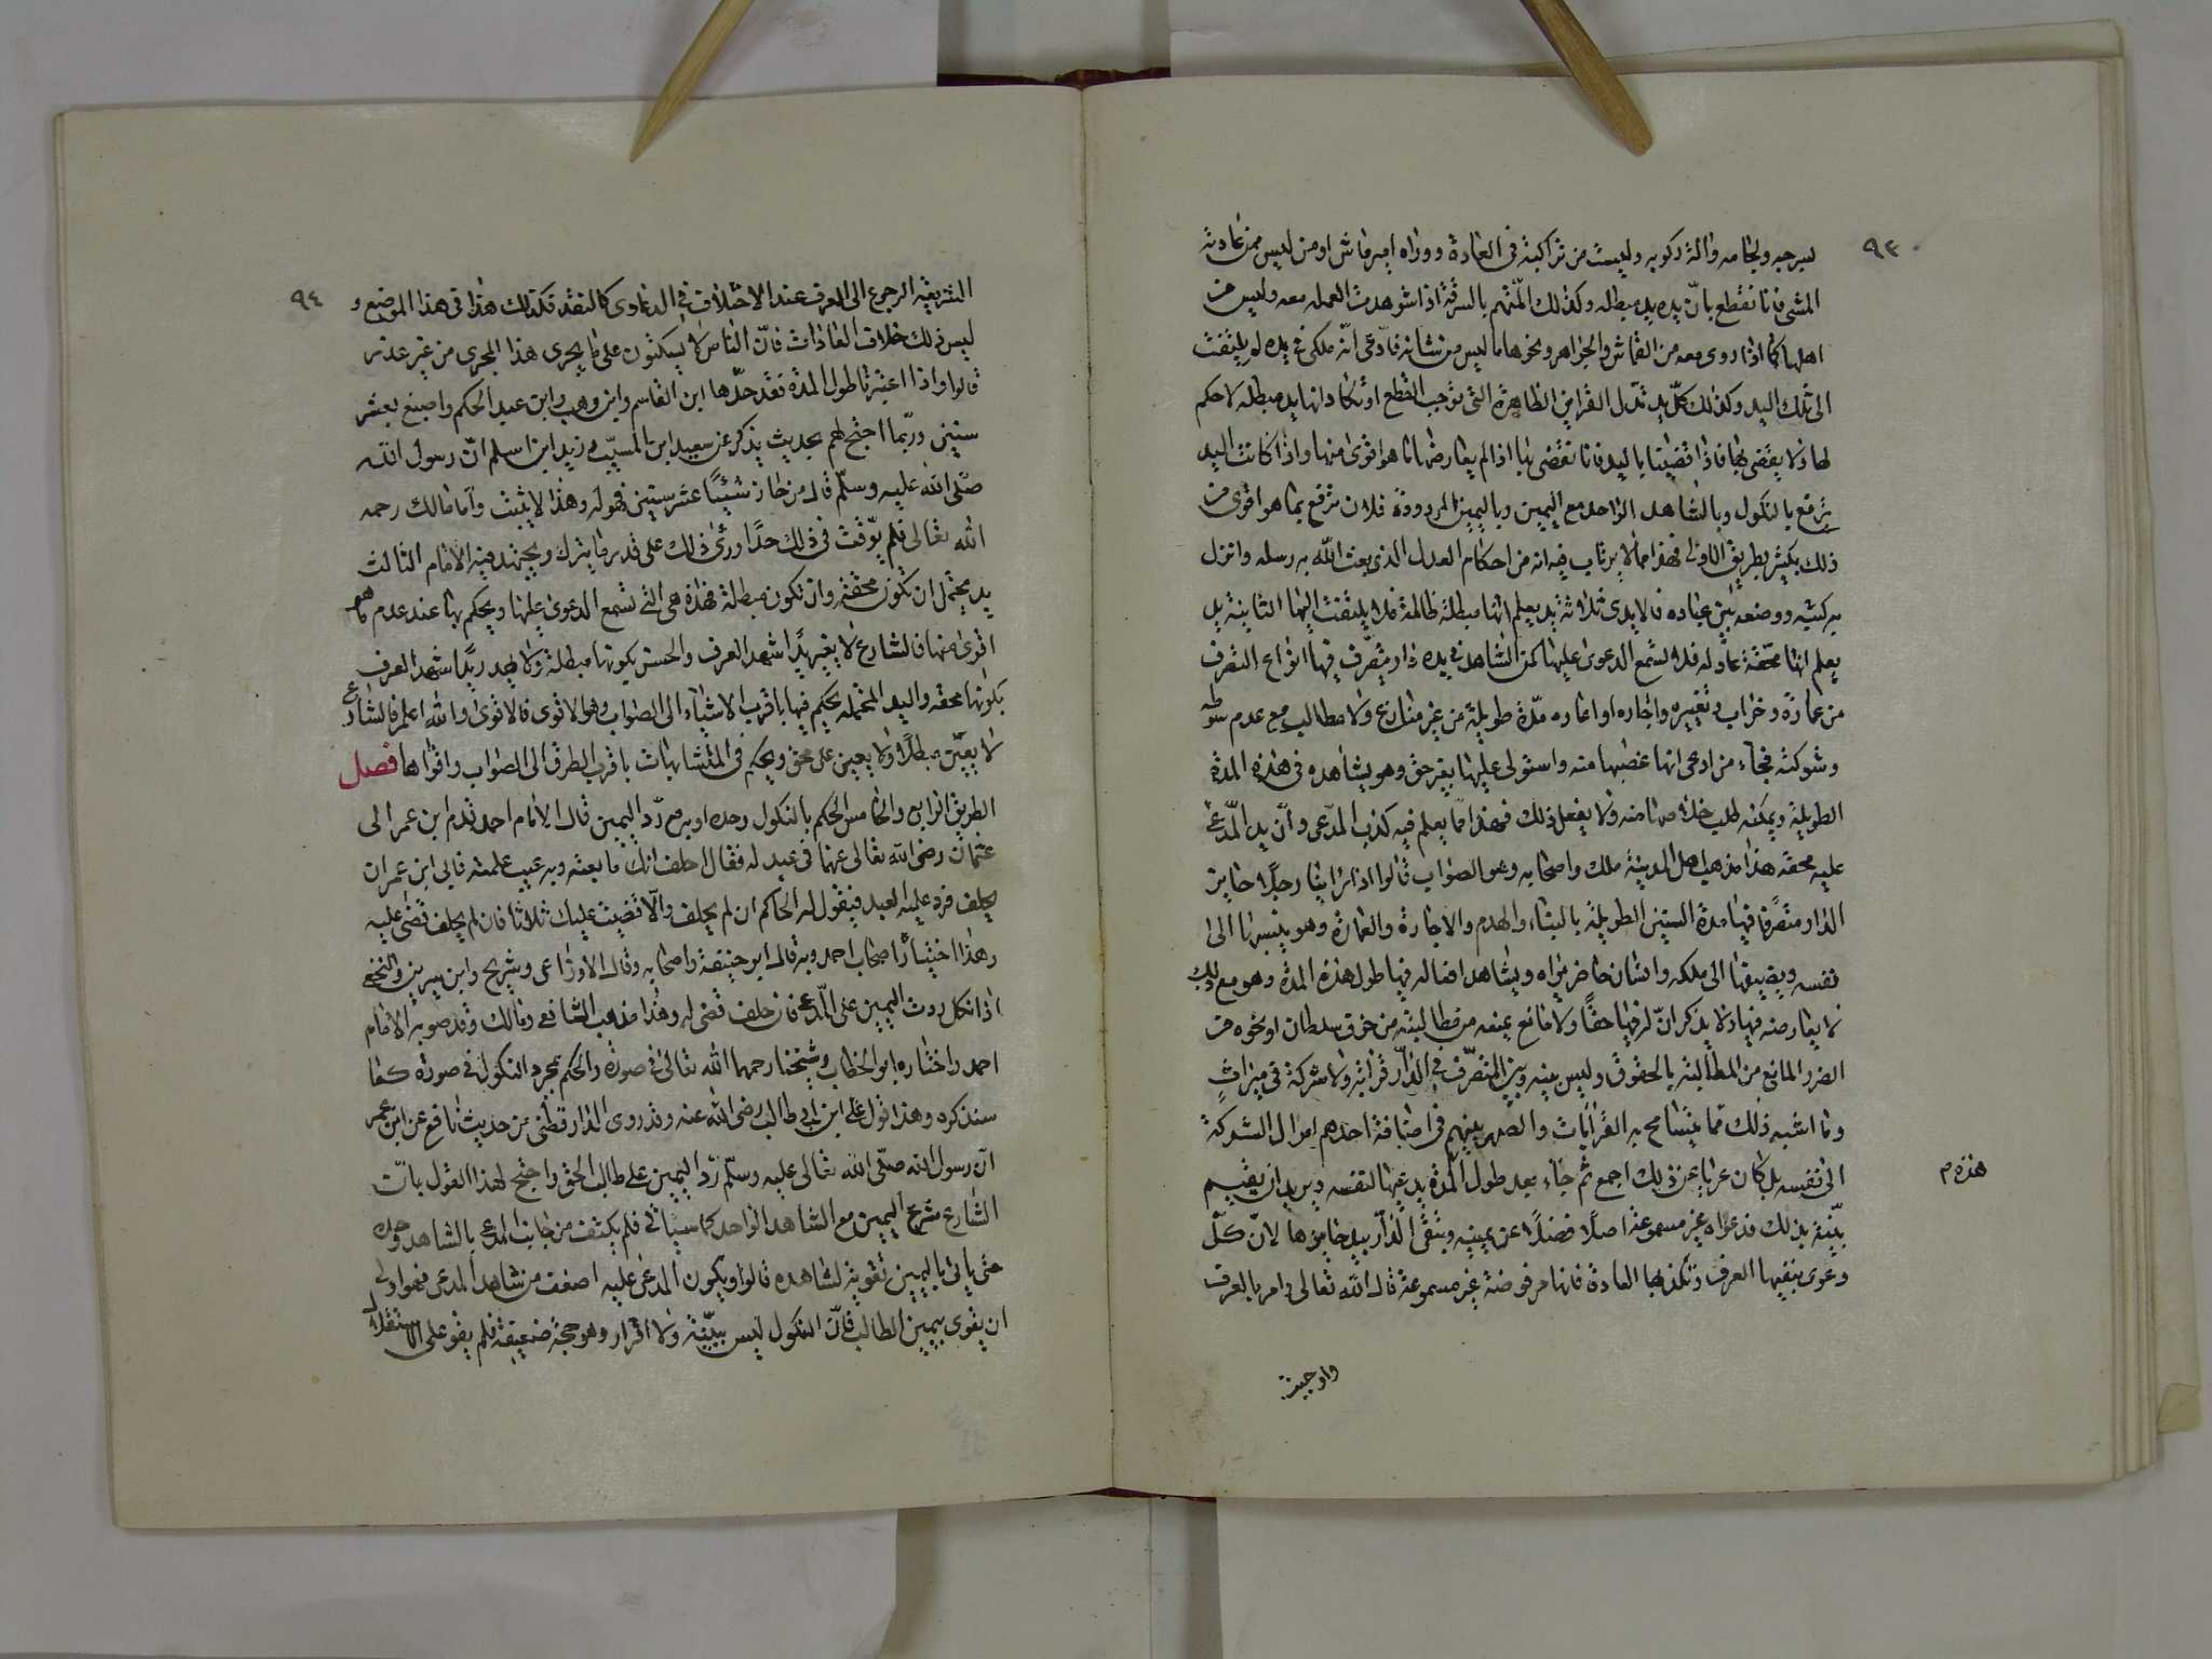 ٩٣
بسرجه ولجامه والة ركوبه وليست من تراكبه فى العادة ووراه امير ماش او من ليس من عادته
المشى فانا نقطع بانّ يده يد مبطله وكذلك المتّهم بالسرقة اذا شوهدت العمله معه وليس من
اهلها كما اذا روى معه من القماش والجواهر ونحوها ما ليس من شانه فادّعى انّه ملكى فى يده لم يلتفت
الى تلك اليد وكذلك كلّ يد تدّل القراين الظاهرة التى توجب القطع او تكاد انها يد مبطله لا حكم
لها ولا يقضى بها فاذا قضينا باليد فانا نقضى بها اذا لم يعارضها ما هو اقوى منها واذا كانت اليد
ترفع بالنكول وبالشاهد الواحد مع اليمين وباليمين المردودة فلان ترفع بما هو اقوى من
ذلك بكثير بطريق الاولى فهذا مما لا يرتاب فيه انه من احكام العدل الذى بعث الله به رسله وانزل
به كتبه ووضعه بين عباده فالايدى ثلاثة يد يعلم انها مبطلة ظالمة فلا يلتفت اليها الثانية يد
يعلم انها محقة عادله فلا تسمع الدعوى عليها كمن يشاهد فى يده دار يتصرّف فيها انواع التصرف
من عمارة وخراب وتغييره واجاره او اعاره مدّة طويلة من غير منازع ولا مطالب مع عدم سوطه
وشوكته فجاء من ادعى انها غصبها منه واستولى عليها بغير حق وهو يشاهده فى هذه المدة
الطويلة ويمكنه طلب خلاصها منه ولا يفعل ذلك فهذا مما يعلم فيه كذب المدّعى وانّ يد المدّعى
عليه محقه هذا مذهب اهل المدينة ملك واصحابه وهو الصواب قالوا اذا راينا رجلا حايز
الدار متصرّفا فيها مدة السنين الطويلة بالبناء والهدم والاجارة والعمارة وهو ينسبها الى
نفسه ويضيفها الى ملكه وانسان حاضر يراه ويشاهد افعاله فيها طول هذه المدة وهو مع ذلك
لا يعارضه فيها ولا يذكر انّ له فيها حقّا ولا مانع يمنعه من مطالبته من خوف سلطان او نحوه من
الضرر المانع من المطالبة بالحقوق وليس بينه وبين المتصرّف فى الدار قرابة ولا شركة فى ميراثٍ
وما اشبه ذلك ممّا يتسامح به القرابات والصهر بينهم فى اضافة احدهم اموال الشركة
الى نفسه بل كان عريا عن ذلك اجمع ثم جاء بعد طول المدّة يدعيها لنفسه ويريد ان يقيم
هذه م
بيّنة بذلك فدعواه غير مسموعة اصلًا فضلًا عن بينيه وتبقى الدار بيد حايزها لانّ كلّ
دعوى ينفيها العرف وتكذبها العادة فانها مرفوضة غير مسموعة قال الله تعالى وامر بالعرف
واوجبت
٩٤
الشريعة الرجوع الى العرف عند الاختلاف فى الدعاوى كالنقد فكذلك هذا فى هذا الموضع و
ليس ذلك خلاف العادات فانّ الناس لا يسكتون على ما يجرى هذا المجرى من غير عذر
قالوا واذا اعتبرنا طول المدة فقد حدّها ابن القاسم وابن وهب وابن عبد الحكم واصبغ بعشر
سنين وربّما احتج لهم بحديث يذكر عن سعيد ابن المسيّب وزيد ابن اسلم انّ رسول الله
صلّى الله عليه وسلّم قال من حاز شيئًا عشر سنين فهو له وهذا لا يثبت وامّا مالك رحمه
الله تعالى فلم يوّقت فى ذلك حدّا وراى ذلك على قدر ما يترك ويجتهد فيه الامام الثالث
يد يحتمل ان تكون محقة وان تكون مبطلة فهذه هى التى تسمع الدعوى عليها ويحكم بها عند عدم ما هو
اقوى منها فالشارع لا يغير يدًا شهد العرف والحسن بكونها مبطلة ولا يهدر يدًا شهد العرف
بكونها محقه واليد المحتمله يحكم فيها باقرب الاشياء الى الصواب وهو الاقوى فالاقوى والله اعلم فالشارع
لا يعيّن مبطلًا ولا يعين على محق ويحكم فى المتشابهات باقرب الطرق الى الصواب واقواها فصل
الطريق الرابع والخامس الحكم بالنكول وحده او به مع ردّ اليمين قال الامام احمد قدم ابن عمر الى
عثمان رضى الله تعالى عنهما فى عبد له فقال احلف انك ما بعته وبه عيب علمته فابى ابن عمر ان
يحلف فرد عليه العبد فيقول له الحاكم ان لم يحلف والّا قضيت عليك ثلاثا فان لم يحلف قضى عليه
وهذا اختيار اصحاب احمد وبه قال ابو حنيفة واصحابه وقال الاوزاعى وشريح وابن سيرين والنخعى
اذا نكل ردت اليمين على المدّعى فان حلف قضى له وهذا مذهب الشافعى ومالك وقد صوبه الامام
احمد واختاره ابو الخطاب وشيخنا رحمهما الله تعالى فى صورة والحكم بمجرد النكول فى صورة كما
سنذكره وهذا قول على ابن ابى طالب رضى الله عنه وقد روى الدارقطنى من حديث نافع عن ابن عمر
انّ رسول الله صلّى الله تعالى عليه وسلّم ردّ اليمين على طالب الحق واحتج لهذا القول بانّ
الشارع شرع اليمين مع الشاهد الواحد كما سياتى فلم يكتف من جانب المدعى بالشاهد وحده
حتى ياتى باليمين تقوية لشاهده قالوا ويكون المدعى عليه اضعف من شاهد المدعى فهو اولى
ان يقوى بيمين الطالب فانّ النكول ليس ببيّنة ولا اقرار وهو حجة ضعيفة فلم يقو على الاستقلال